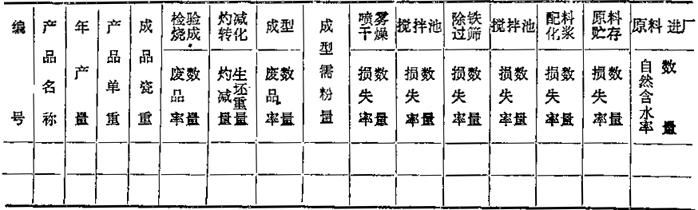 编号
产品名称
年产量
产品单重
成品瓷重
检验烧成
废品率
数量
灼减转化
灼减
生坯重量
成型
废品率
数量
成型需粉量
喷雾干燥
损失率
数量
搅拌池
损失率
数量
除铁过筛
损失率
数量
搅拌池
损失率
数量
配料化浆
损失率
数量
原料贮存
损失率
数量
原料进厂
自然含水率
数量